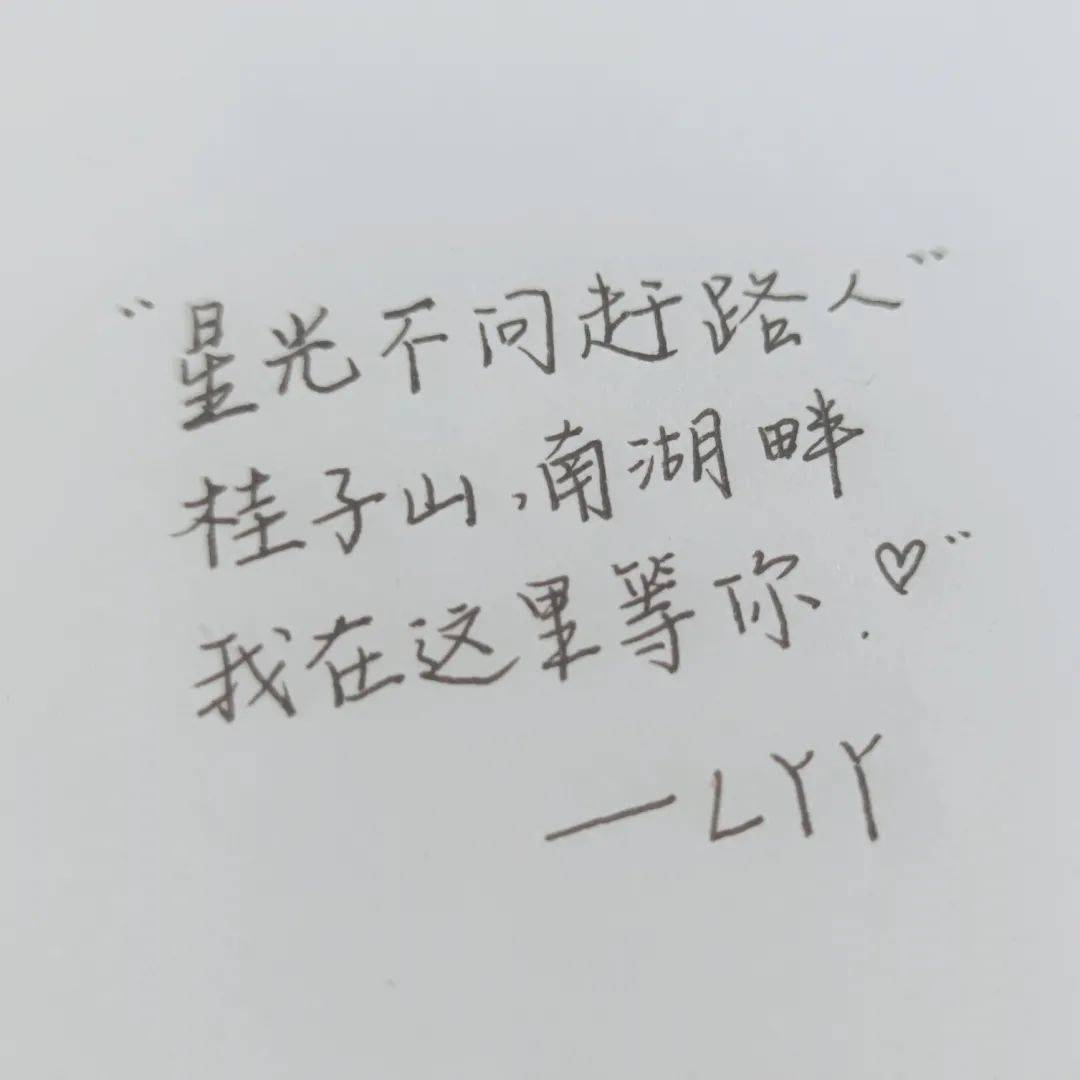 “星光不问赶路人”
桂子山,南湖畔
我在这里等你.♡”
—LYY